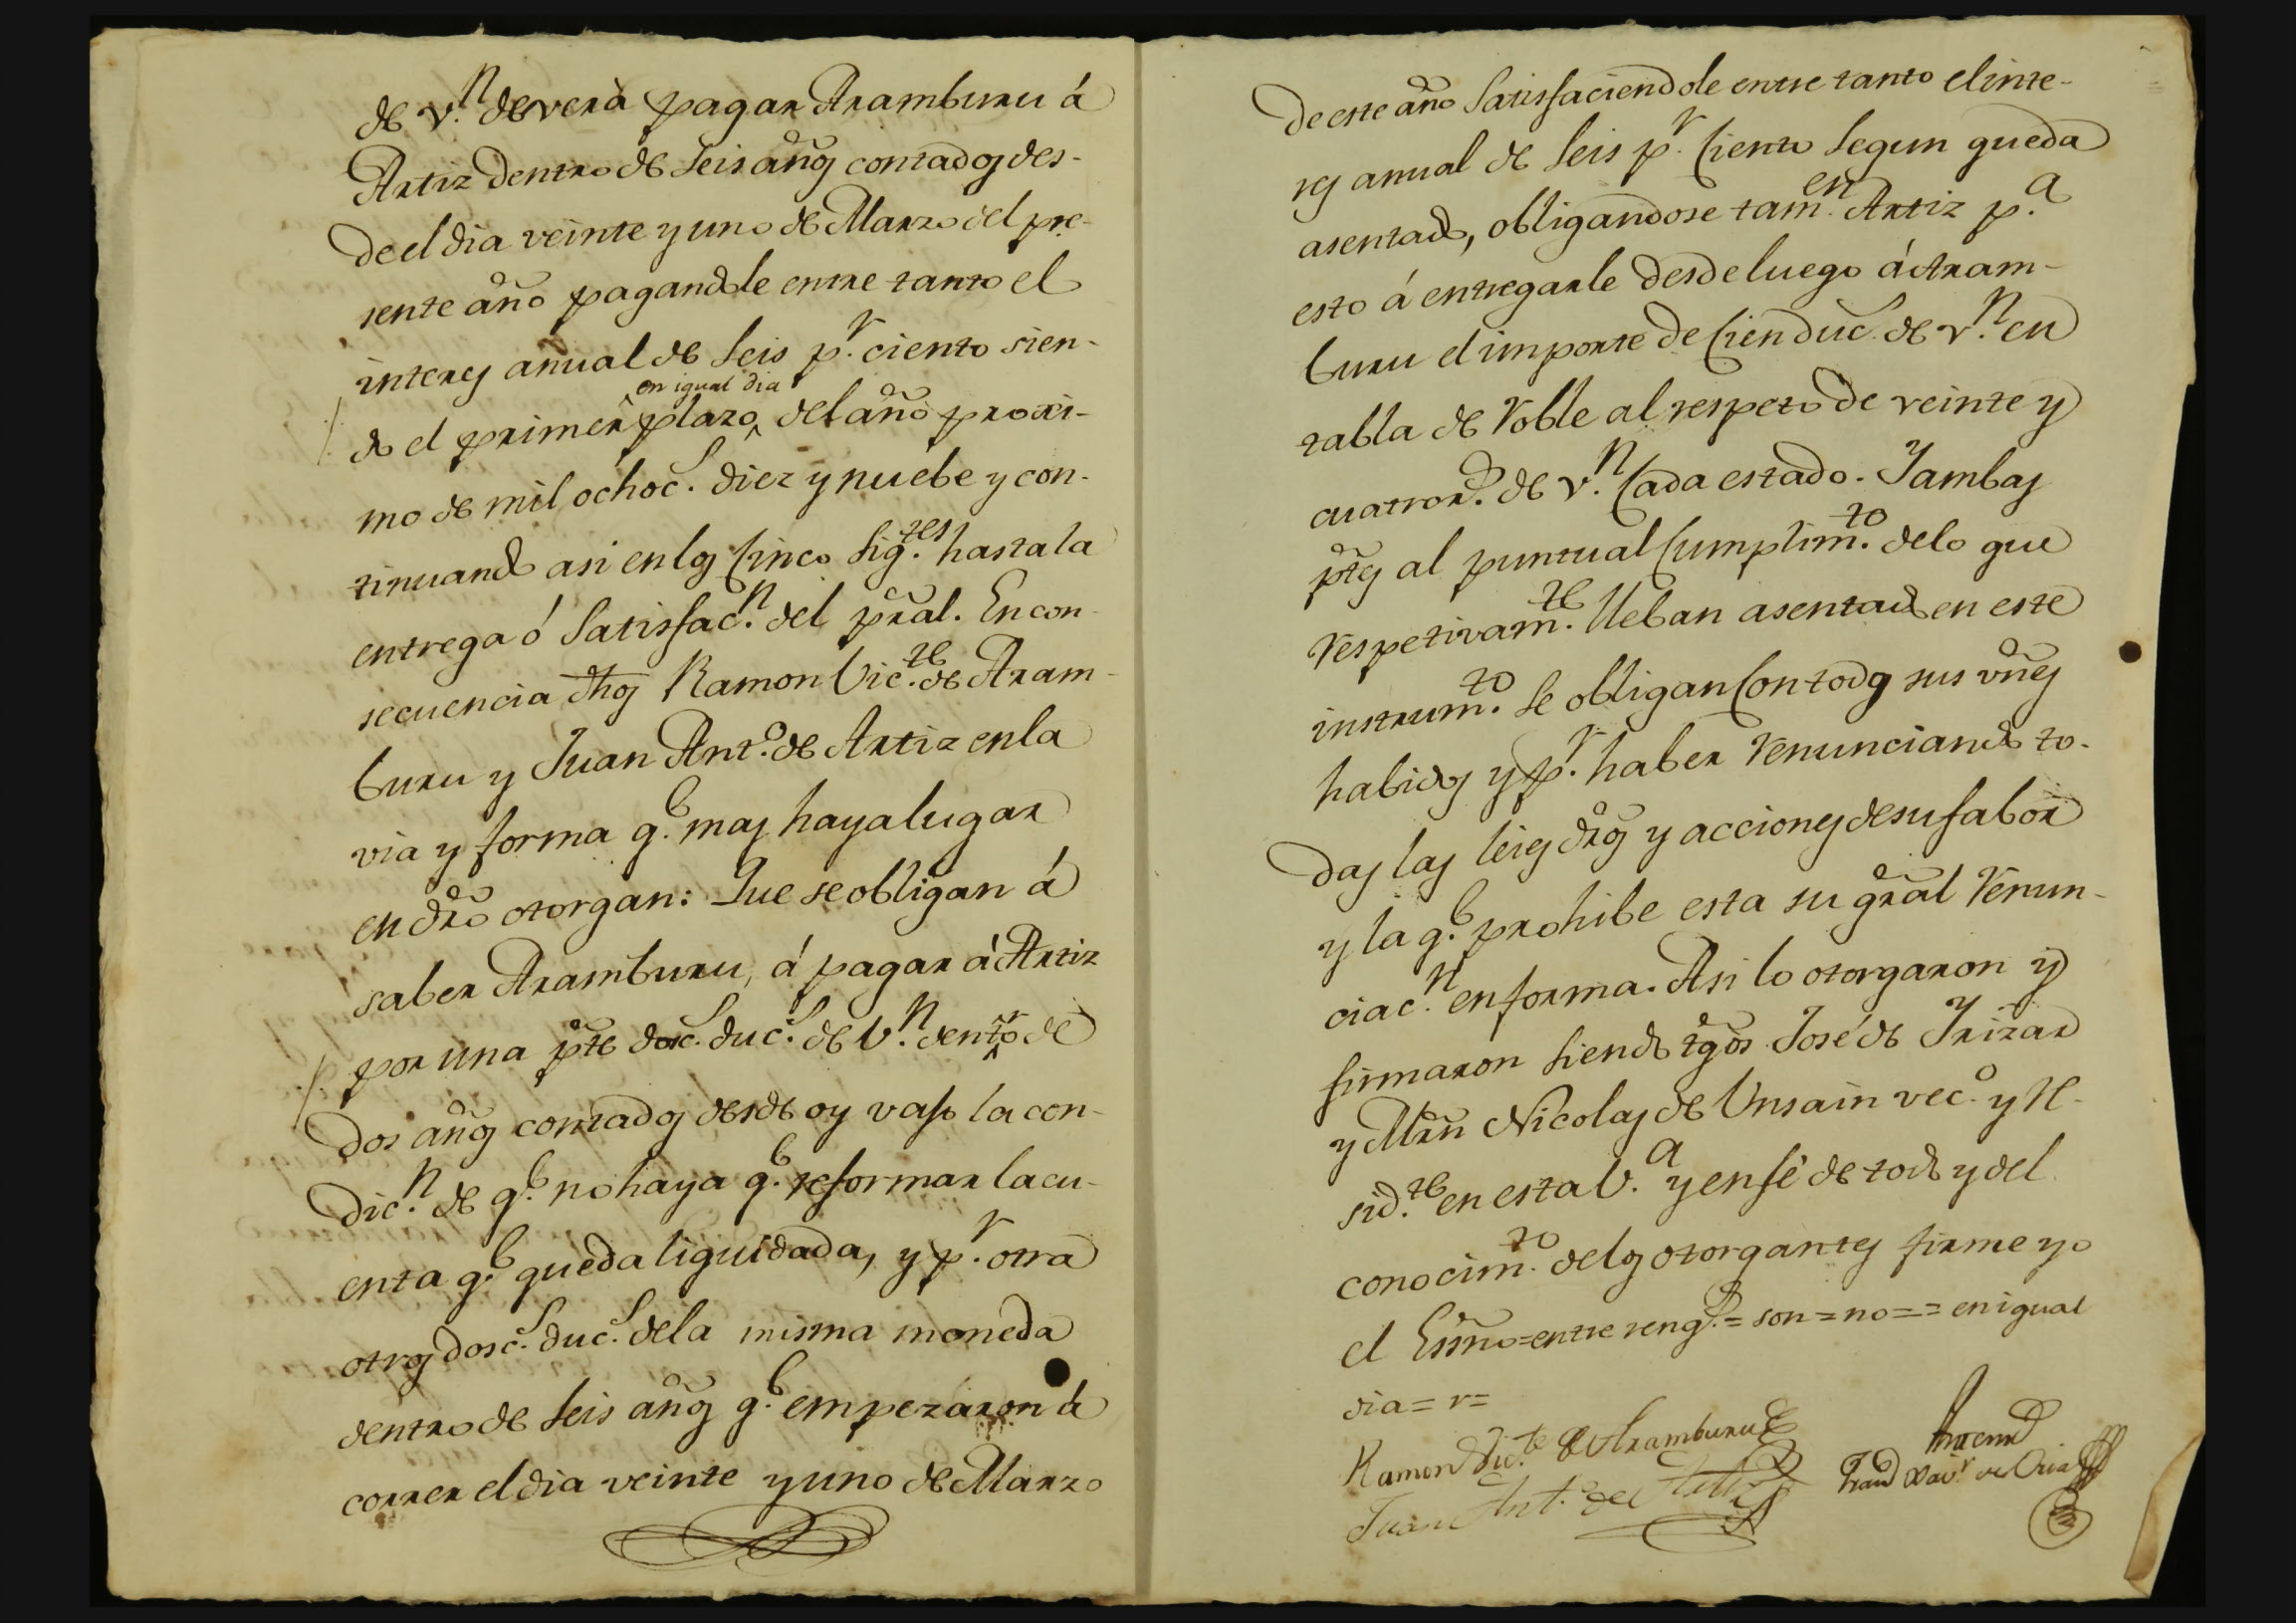 de v.n deverà pagar Aramburu á
Artiz dentro de seis años contados des-
de el dia veinte y uno de Marzo del pre-
sente año pagandole entre tanto el
interes anual de seis p.r ciento sien-
en igual dia
do el primer plazo del año proxi-
mo de mil ochoc.s diez y nuebe y con-
tinuando asi en los cinco sig.tes hasta la
entrega ó satisfac.n del pral. En con-
secuencia dhos Ramon Vic.te de Aram-
buru y Juan Ant.o de Artiz en la
via y forma q.e mas haya lugar
en dro otorgan: Que se obligan á
saber Aramburu, á pagar à Artiz
por una pte dosc.s duc.s de v.n dentro de
dos años contados desde oy vajo la con-
dic.n de q.e no haya q.e reformar la cu-
enta q.e queda liquidada, y p.r otra
otros dosc.s duc.s de la misma moneda
dentro de seis años q.e empezaron à
correr el dia veinte y uno de Marzo
de este año satisfaciendole entre tanto el inte-
res anual de seis p.r ciento segun queda
asentado, obligandose tam.en Artiz p.a
esto á entregarle desde luego á Aram-
buru el importe de cien duc.s de v.n en
tabla de roble al respeto de veinte y
cuatro r.s de v.n cada estado. Y ambas
ptes al puntual cumplim.to de lo que
respetivam.te lleban asentado en este
instrum.to se obligan con todos sus vnes
habidos y p.r haber renunciando to-
das las leies dros y acciones de su fabor
y la q.e prohibe esta su gral renun-
ciac.n en forma. Asi lo otorgaron y
firmaron siendo tgos José de Yrizar
y Mrn Nicolas de Unsain vec.s y re-
sid.te en esta V.a y en fé de todo y del
conocim.to de los otorgantes firme yo
el Essno = entre reng.s = son = no = = en igual
dia = r =
Ramon Vic.te de Aramburu
Juan Ant.o de Artiz
Ante mi